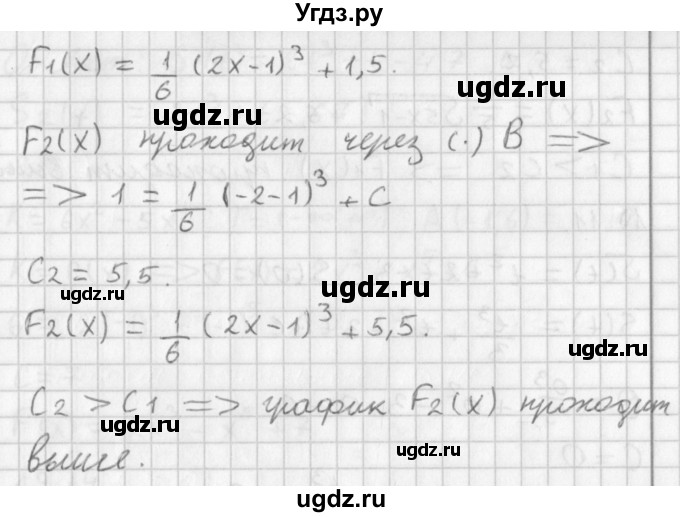 Угдз.ру
F1(x) = 1/6 (2x-1)^3 + 1,5.
ugdz.ru
ugdz.ru
F2(x) проходит через (·) B =>
=> 1 = 1/6 (-2-1)^3 + C
ugdz.ru
C2 = 5,5.
ugdz.ru
ugdz.ru
F2(x) = 1/6 (2x-1)^3 + 5,5.
ugdz.ru
C2 > C1 => график F2(x) проходит
ugdz.ru
ugdz.ru
выше.
ugdz.ru
ugdz.ru